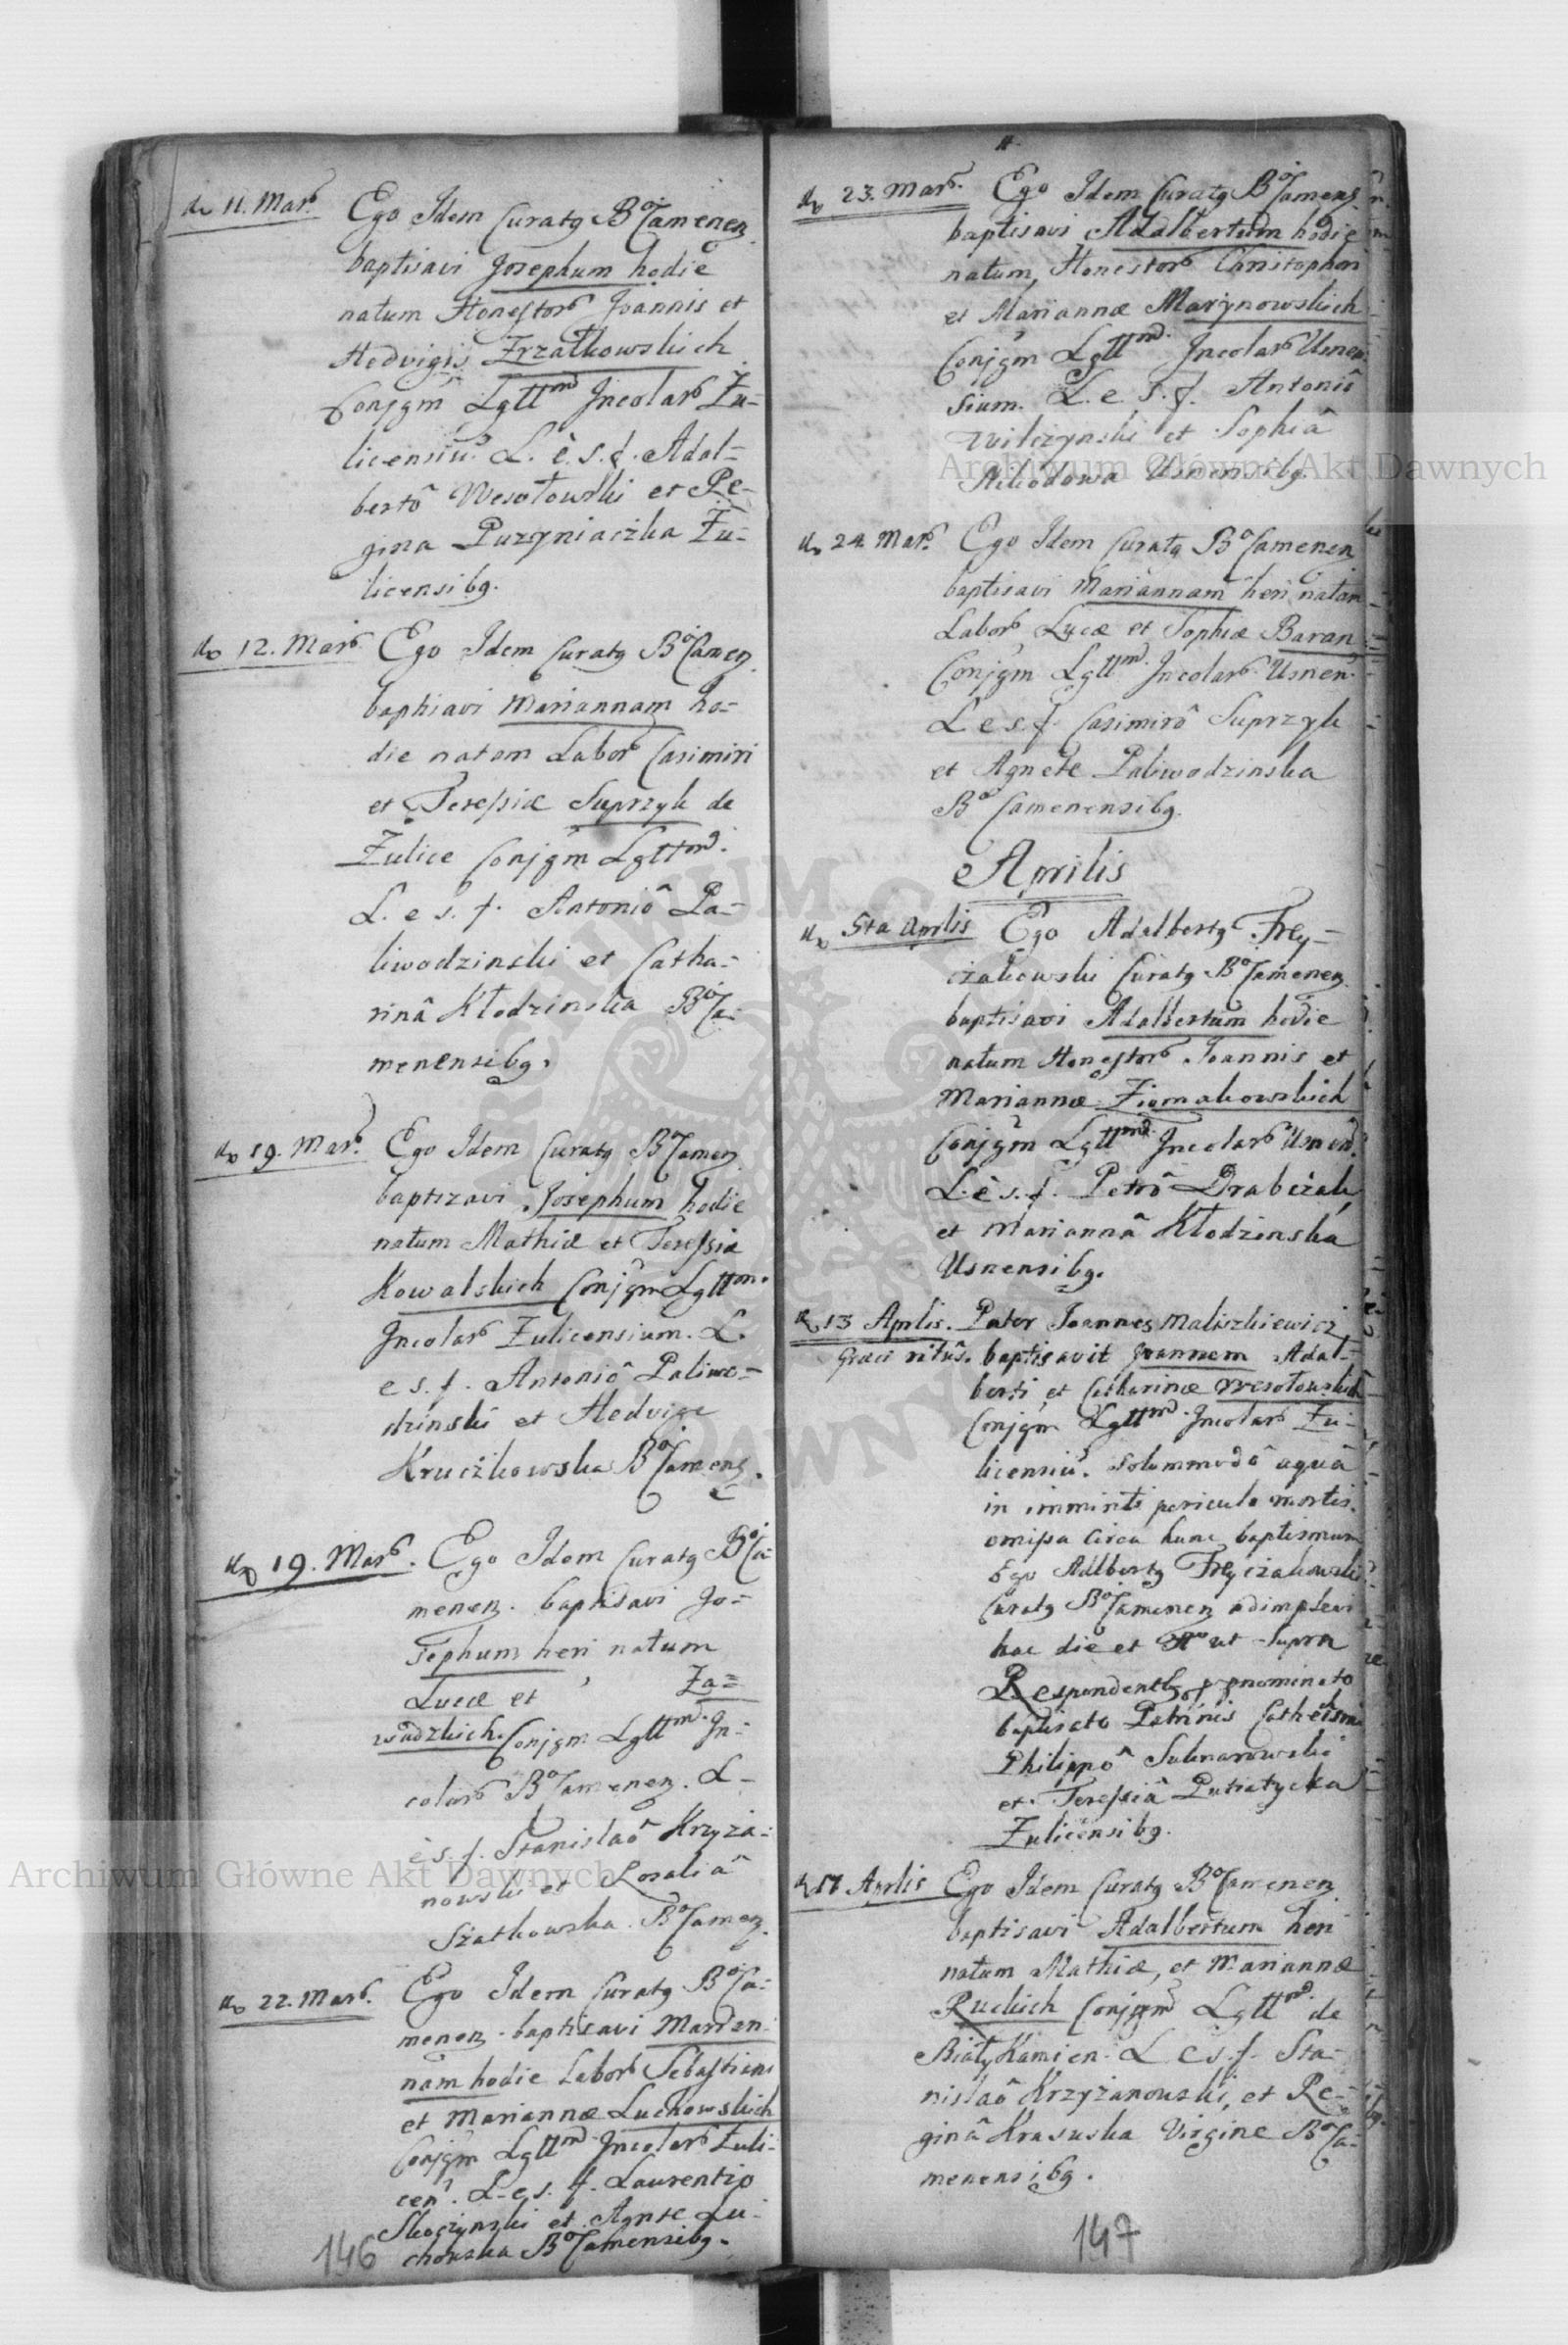 do 11. Marb.
Ego Idem Curatq BoCamenen
baptisavi Josephum hodie
natum Honestorb Joannis et
Hedvigis Zrzałkowskich
Conjgm Lgttmd Incolarb Żu-
licensiu. L. è. s. f. Adal-
bertô Wesołowski et Re-
gina Puzyniaczka Żu-
licensibq.
do 12. Marb
Ego Idem Curatq BoCamen
baptisavi Mariannam ho-
die natam Laborb Casimiri
et Teressiæ Suprzyk de
Żulice Conjgm Lgttmd.
L. e s. f. Antoniô Pa-
liwodzinski et Catha-
rinâ Kłodzinska BoCa-
menensibq.
do 19. Marb.
Ego Idem Curatq BoCamen
baptizavi Josephum hodie
natum Mathiæ et Teressiæ
Kowalskich Conjgm Lgttm.
Incolarb Zulicensium. L.
e s. f. Antoniô Paliwo-
dzinski et Hedvige
Kruczkowska BoCamens.
do 19. Marb.
Ego Idem Curatq BoCa-
menen. baptisavi Jo-
sephum heri natum
Lucæ et Za=
wadzkich. Conjgm Lgttmd. In-
colarb BoCamenen. L-
è s. f. Stanislaô Krzyża-
nowski et Rosaliâ
Szatkowska BoCamen.
do 22. Marb.
Ego Idem Curatq BoCa-
menen. baptisavi Marian-
nam hodie Laborb Sebastiani
et Mariannæ Luchowskich
Conjgm Lgttmd Incolarb Zuli-
cen. L. e s. f. Laurentio
Skoczynski et Agnte Lu-
chowska BoCamensibq.
146
do 23. Marb.
Ego Idem Curatq BoCamens
baptisavi Adalbertum hodie
natum, Honestorb Christophori
et Mariannæ Marynowskich
Conjgm Lgttmd. Incolarb Usnen-
sium. L. e. s. f. Antoniô
Wilczynski et Sophiâ
Usnensibq.
do 24. Marb.
Ego Idem Curatq BoCamenen
baptisavi Mariannam heri natam
Laborb Lucæ et Sophiæ Baran
Conjgm Lgttmd. Incolarb Usnen.
L e s. f. Casimirô Suprzyk
et Agnete Paliwodzinska
BoCamenensibq.
Aprilis
do 5ta Aprlis
Ego Adalbertq Frey-
czakowski Curatq BoCamenen
baptisavi Adalbertum hodie
natum Honestorb Joannis et
Mariannæ Ziomakowskich
Conjgm Lgttmd. Incolarb Usnen.
L. è s. f. Petrô Drabczak
et Mariannâ Kłodzinska
Usnensibq.
do 13 Aprlis. Pater Joannes Maliszkiewicz
Græci ritûs. baptisavit Joannem Adal-
berti et Catharinæ Wesołowskich
Conjgm Lgttmd. Incolarb Zu-
licensiu. Solummodô aquâ
in imminti periculo mortis.
omissa circa hunc baptismum
Ego Adlbertq Freyczakowski
Curatq BoCamenen adimplevi
hac die et Ao ut supra
Respondentbq p pnominato
baptisato Patrinis Cathechismi
Philippô Suknarowski
et Teressiâ Putiatycka
Zulicensibq.
do 17 Aprlis
Ego Idem Curatq BoCamenen
baptisavi Adalbertum heri
natum Mathiæ, et Mariannæ
Ruckich Conjgm Lgttmd. de
BiałyKamien. L e s. f. Sta-
nislaô Krzyżanowski, et Re-
ginâ Krasuska Virgine BoCa-
menensibq.
147
Archiwum Główne Akt Dawnych
Archiwum Główne Akt Dawnych